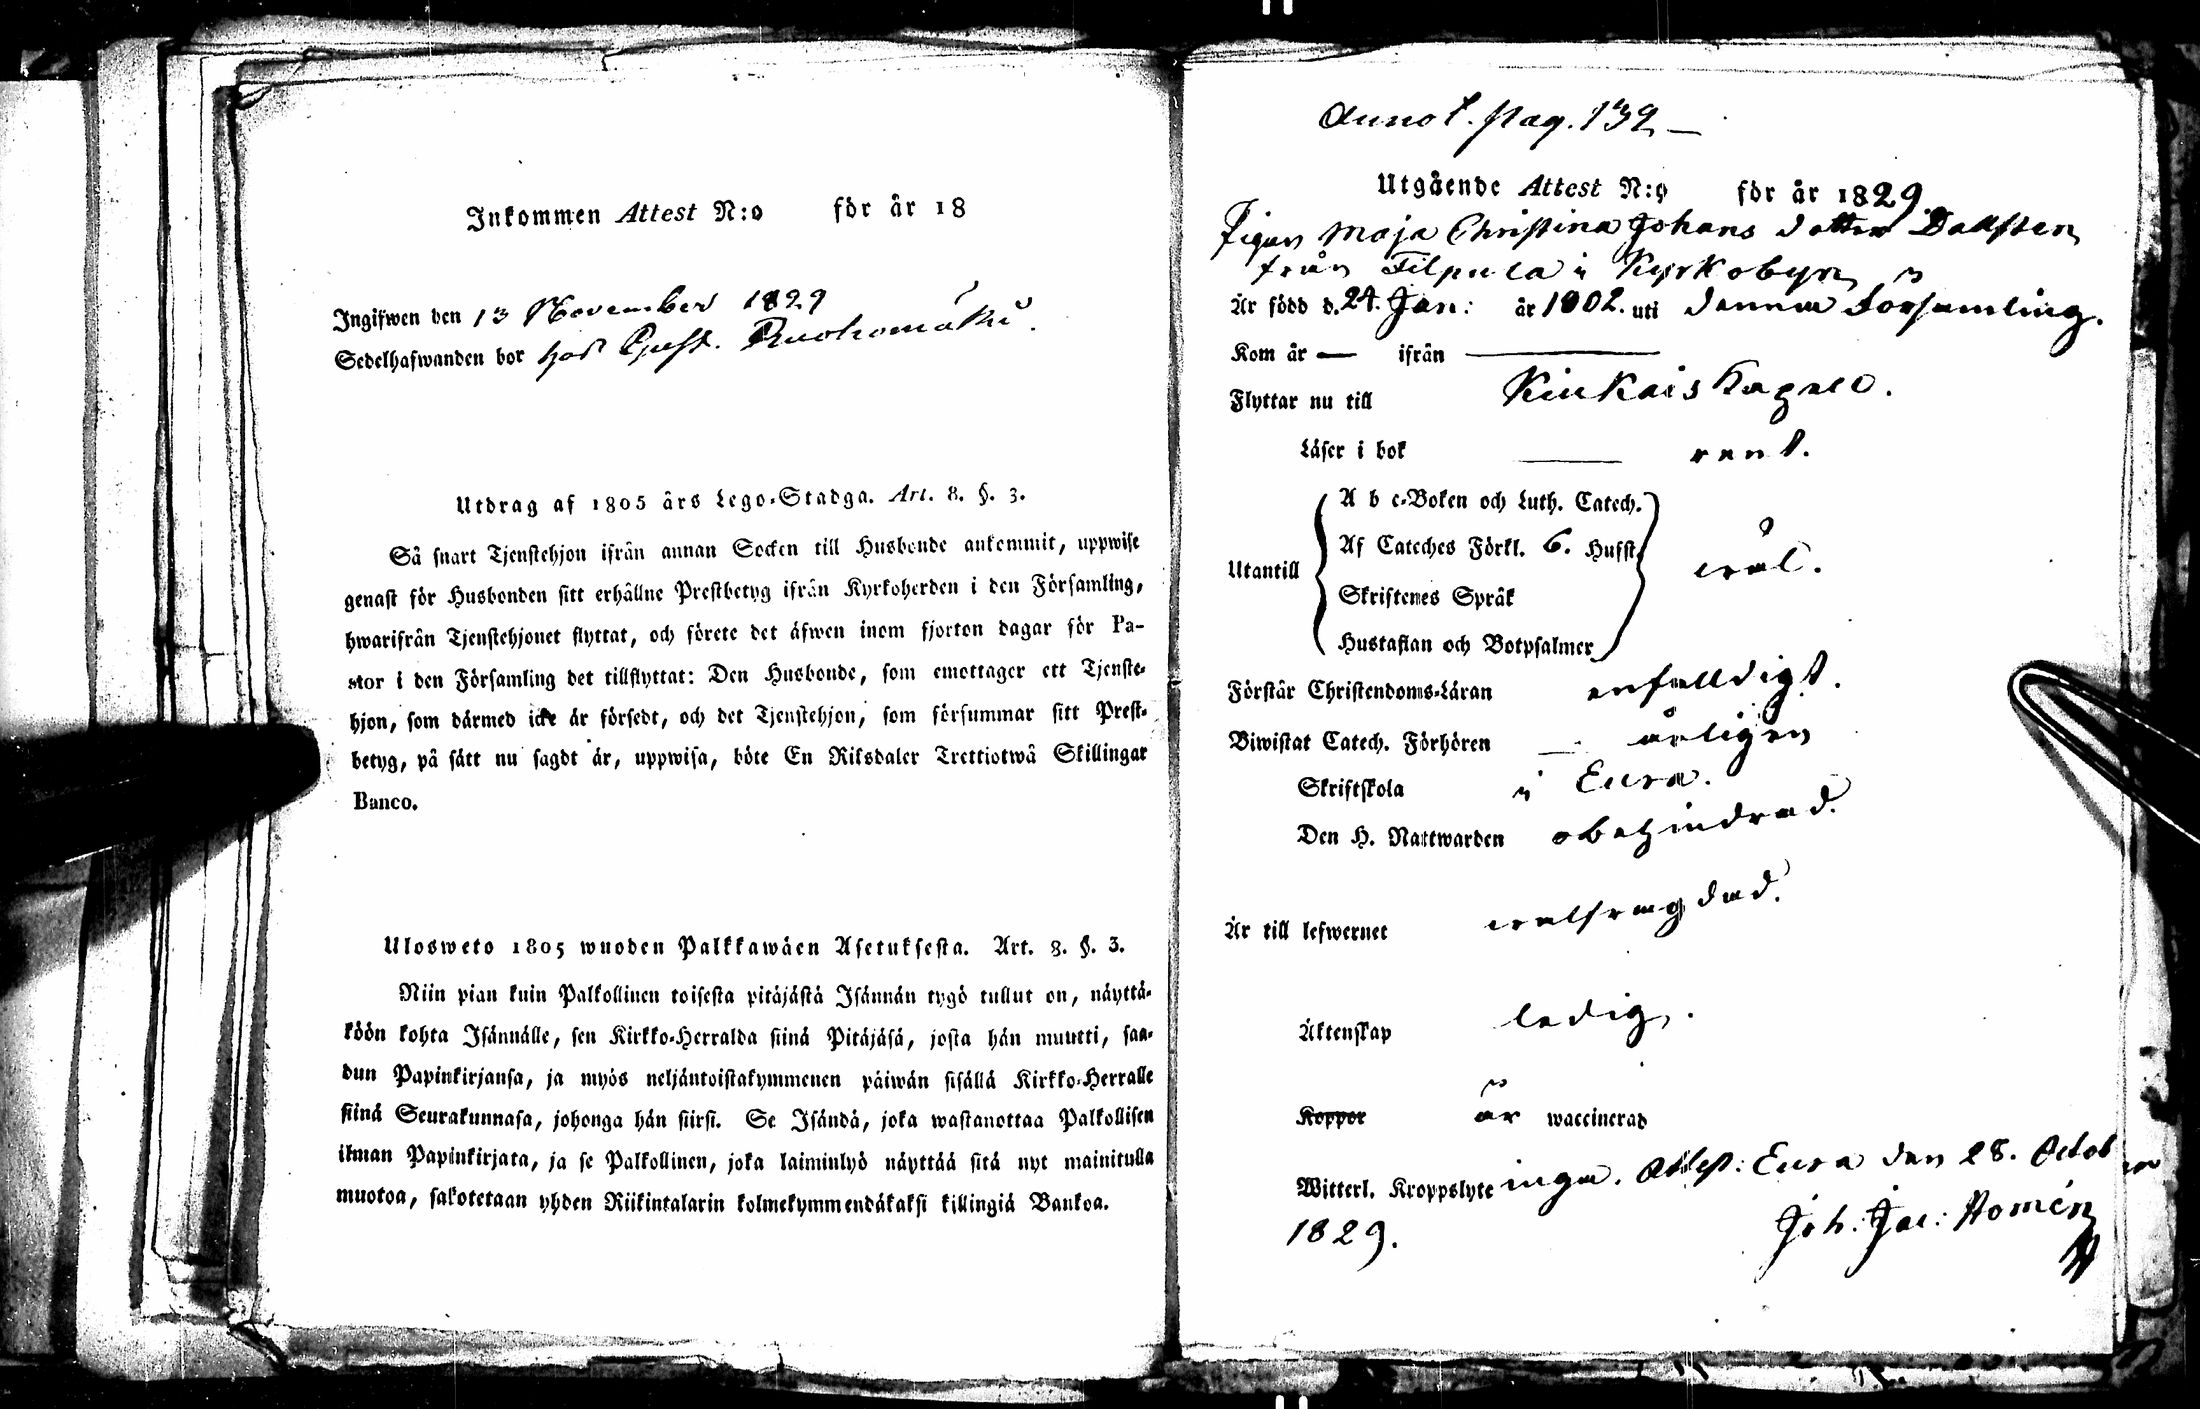 Inkommen Attest N:o för år 18
Ingifwen den 13 November 1829
Sedelhafwanden bor hos Gust. Ruohomäki.
Utdrag af 1805 års Lego-Stadga. Art. 8. §. 3.
Så snart Tjenstehjon ifrån annan Socken till Husbonde ankommit, uppwise
genast för Husbonden sitt erhållne Prestbetyg ifrån Kyrkoherden i den Församling,
hwarifrån Tjenstehjonet flyttat, och förete det äfwen inom fjorton dagar för Pa-
stor i den Församling det tillflyttat: Den Husbonde, som emottager ett Tjenste-
hjon, som därmed icke är försedt, och det Tjenstehjon, som försummar sitt Prest-
betyg, på sätt nu sagdt är, uppwisa, böte En Riksdaler Trettiotwå Skillingar
Banco.
Ulosweto 1805 wuoden Palkkawäen Asetuksesta. Art. 8. §. 3.
Niin pian kuin Palkollinen toisesta pitäjästä Isännän tygö tullut on, näyttä-
köön kohta Isännälle, sen Kirkko-Herralda siinä Pitäjäsä, josta hän muutti, saa-
dun Papinkirjansa, ja myös neljäntoistakymmenen päiwän sisällä Kirkko-Herralle
siinä Seurakunnasa, johonga hän siirsi. Se Isändä, joka wastanottaa Palkollisen
ilman Papinkirjata, ja se Palkollinen, joka laiminlyö näyttää sitä nyt mainitulla
muotoa, sakotetaan yhden Riikintalarin kolmekymmendäkaksi killingiä Bankoa.
Annot. pag. 139
Utgående Attest N:o för år 1829
Pigan Maja Christina Johans dotter Dallsten
från Filpula i Kyrkobyn
Är född d. 24. Jan: år 1802. uti denna Församling.
Kom år — ifrån —
Flyttar nu till Kiukais Kapell.
Läser i bok — rent.
Utantill
A b c-Boken och Luth. Catech.
Af Cateches Förkl. 6. Hufst.
Skriftenes Språk
Hustaflan och Botpsalmer
wäl.
Förstår Christendoms-Läran enfalldigt.
Biwistat Catech. Förhören — årligen
Skriftskola i Eura.
Den H. Nattwarden obehindrad.
Är till lefwernet wälfrägdad.
Äktenskap ledig.
Koppor är waccinerad
Witterl. Kroppslyte inga. Attest: Eura den 28. October
1829.
Joh: Jac: Homén